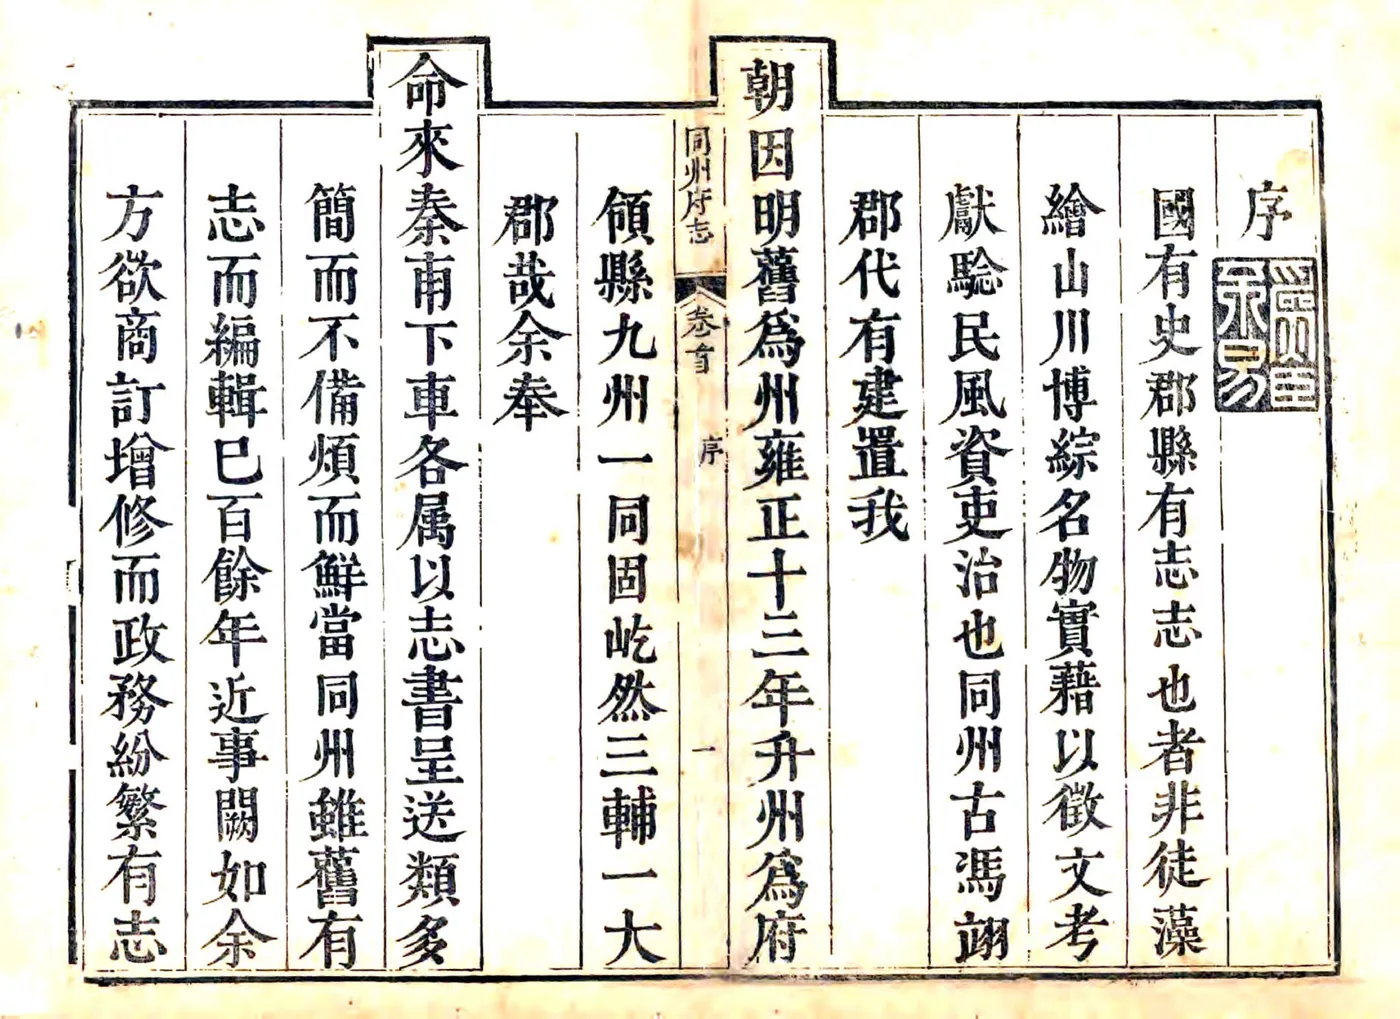 序
國有史郡縣有志志也者非徒藻
繪山川博綜名物實藉以徵文考
獻騐民風資吏治也同州古馮翊
郡代有建置我
朝因明舊爲州雍正十三年升州爲府
同州府志
卷首
序
一
領縣九州一同固屹然三輔一大
郡哉余奉
命來秦甫下車各属以志書呈送類多
簡而不備煩而鮮當同州雖舊有
志而編輯巳百餘年近事闕如余
方欲商訂增修而政務紛繁有志